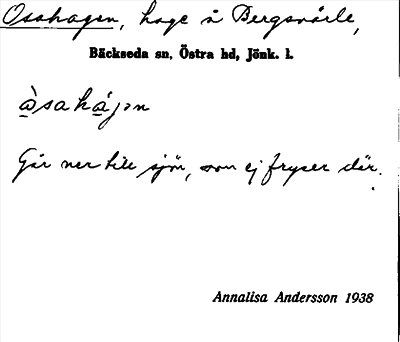 Osahagen, hage å Bergsvärle,
Bäckseda sn, Östra hd, Jönk. l.
àsahájən
Går ner till sjön, som ej fryser där.
Annalisa Andersson 1938